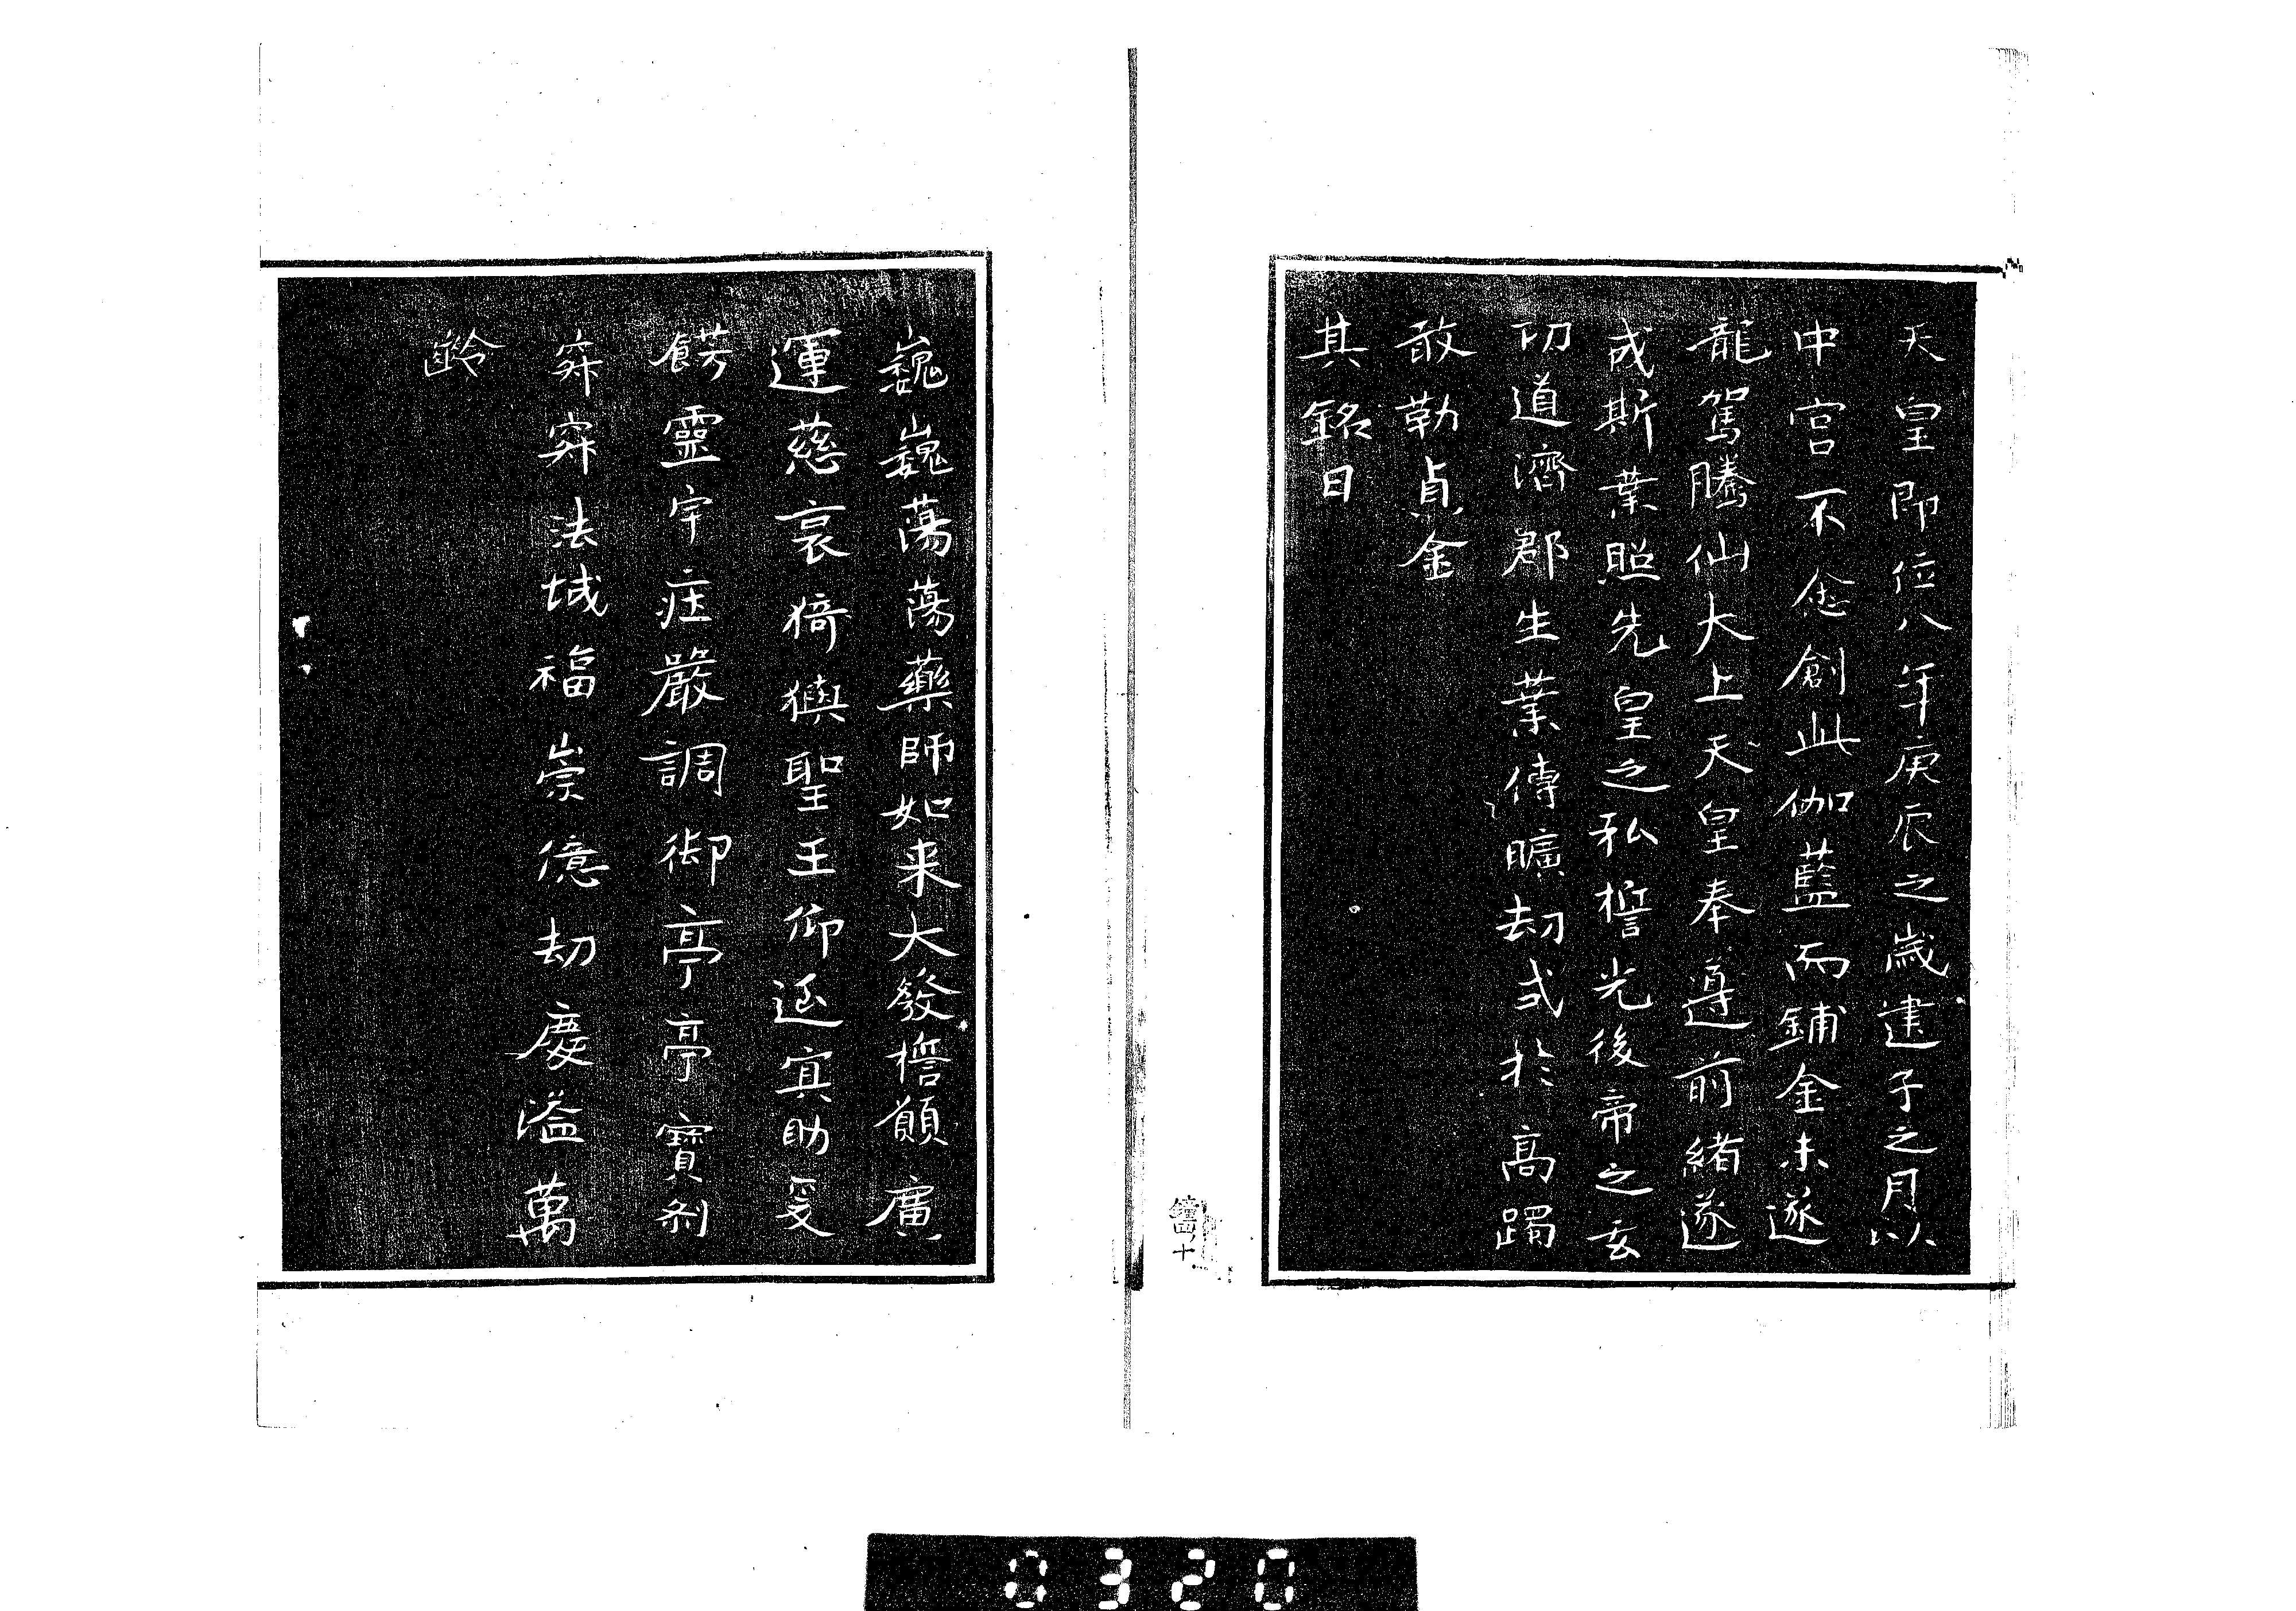 天皇即位八年庚辰之歳建子之月以
中宮不悆創此伽藍而鋪金未遂
龍駕騰仙大上天皇奉遵前緒遂
成斯業照先皇之私誓光後帝之玄
功道濟郡生業傳曠劫式於高躅
敢勒貞金
其銘曰
巍巍蕩蕩藥師如来大發誓願廣
運慈哀猗㺞聖王仰延冥助爰
餝靈宇庄嚴調御亭亭寶刹
寂寂法城福崇億劫慶溢萬
齡
0320